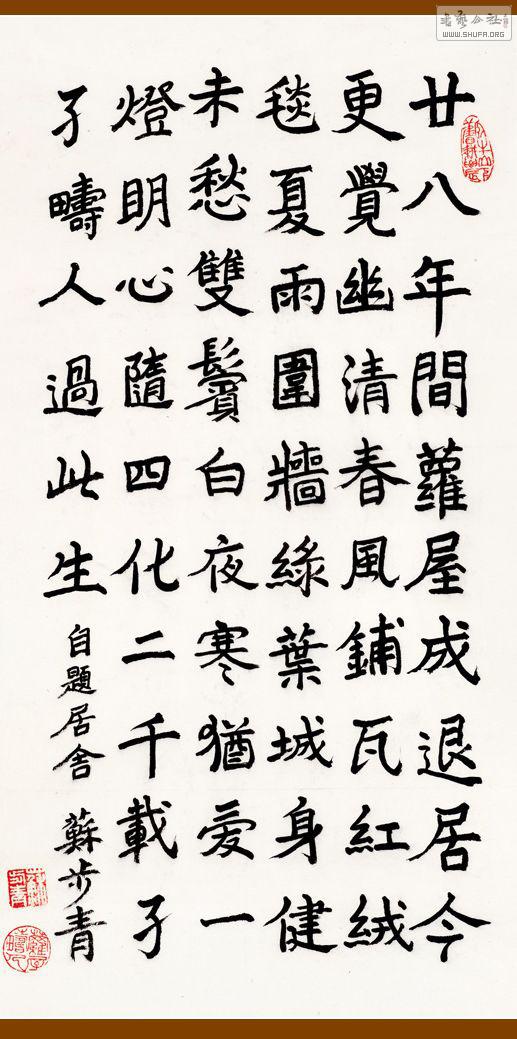 廿八年間蘿屋成退居今
更覺幽清春風鋪瓦紅絨
毯夏雨圍牆綠葉城身健
未愁雙鬢白夜寒猶愛一
燈明心隨四化二千載孑
孑疇人過此生 自題居舍 蘇步青
书艺公社
WWW.SHUFA.ORG